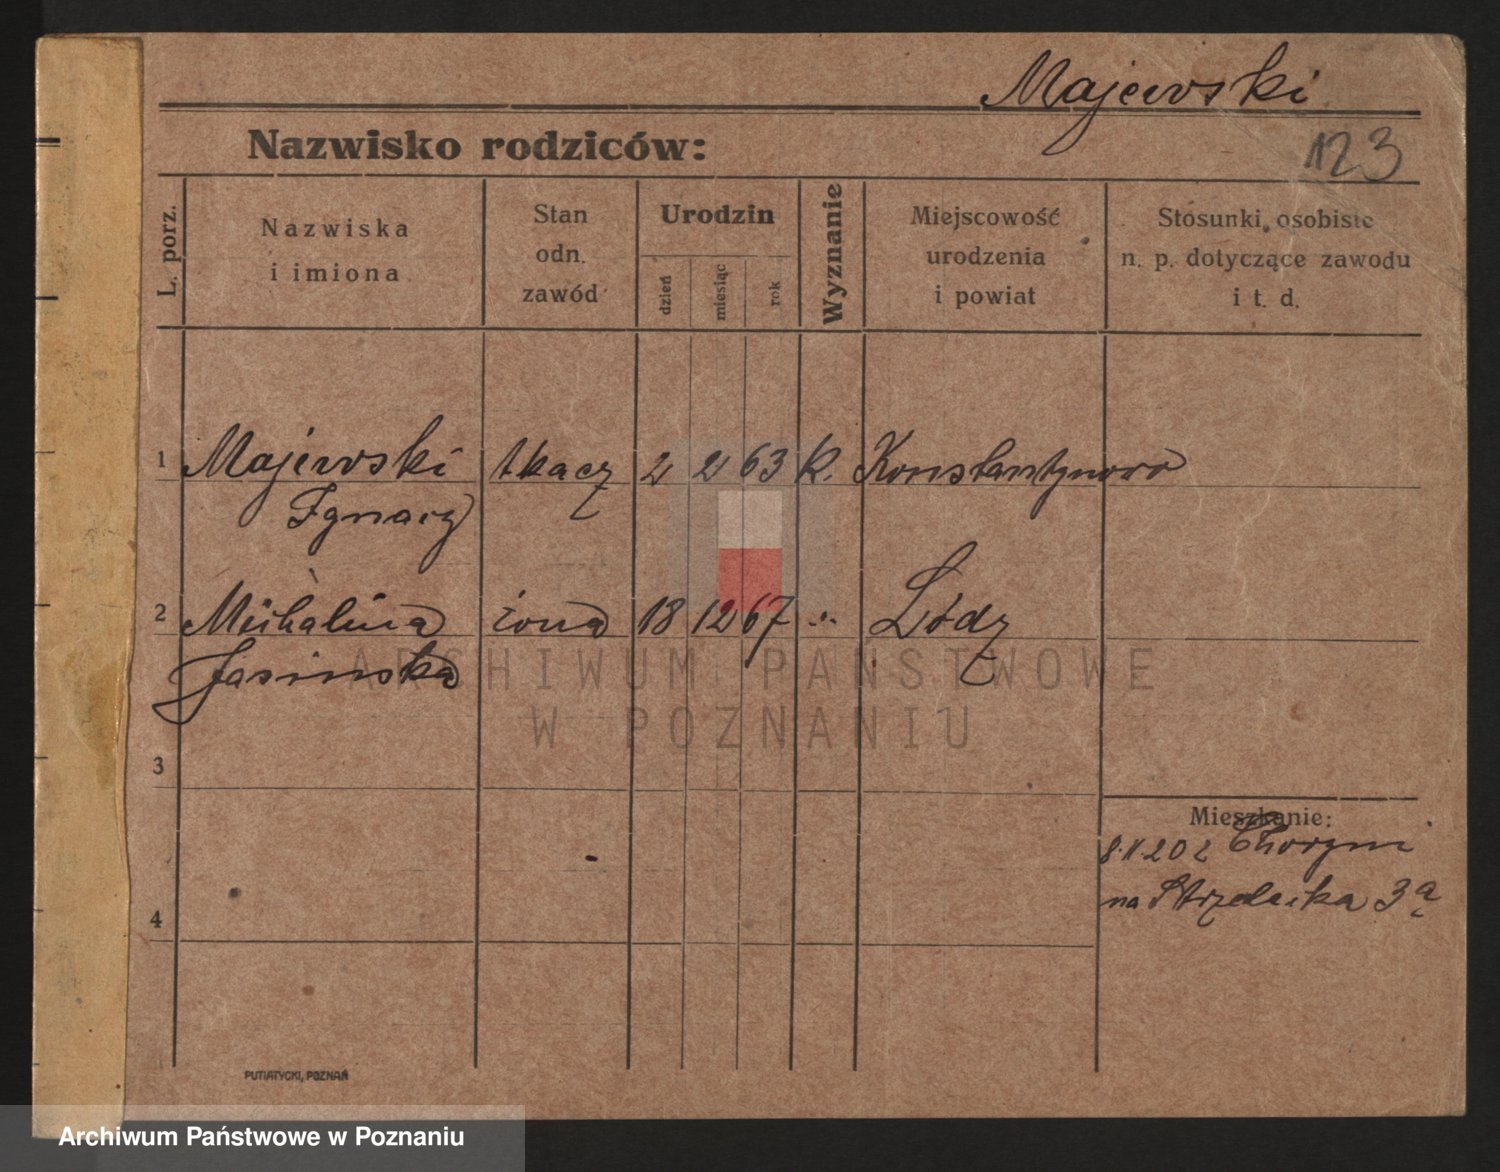 Majewski
123
Nazwisko rodziców:
L. porz.
Nazwiska
i imiona
Stan
odn.
zawód
Urodzin
dzień
miesiąc
rok
Wyznanie
Miejscowość
urodzenia
i powiat
Stosunki osobiste
n. p. dotyczące zawodu
i t. d.
1 Majewski tkacz 2 2 63 k. Konstantynowo
Ignacy
2 Michalina żona 18 12 67 -"- Łódz
Jasinska
ARCHIWUM PAŃSTWOWE
W POZNANIU
3
Mieszkanie:
8.V.20 z
na Strzelecka 3a
4
PUTIATYCKI, POZNAŃ
Archiwum Państwowe w Poznaniu